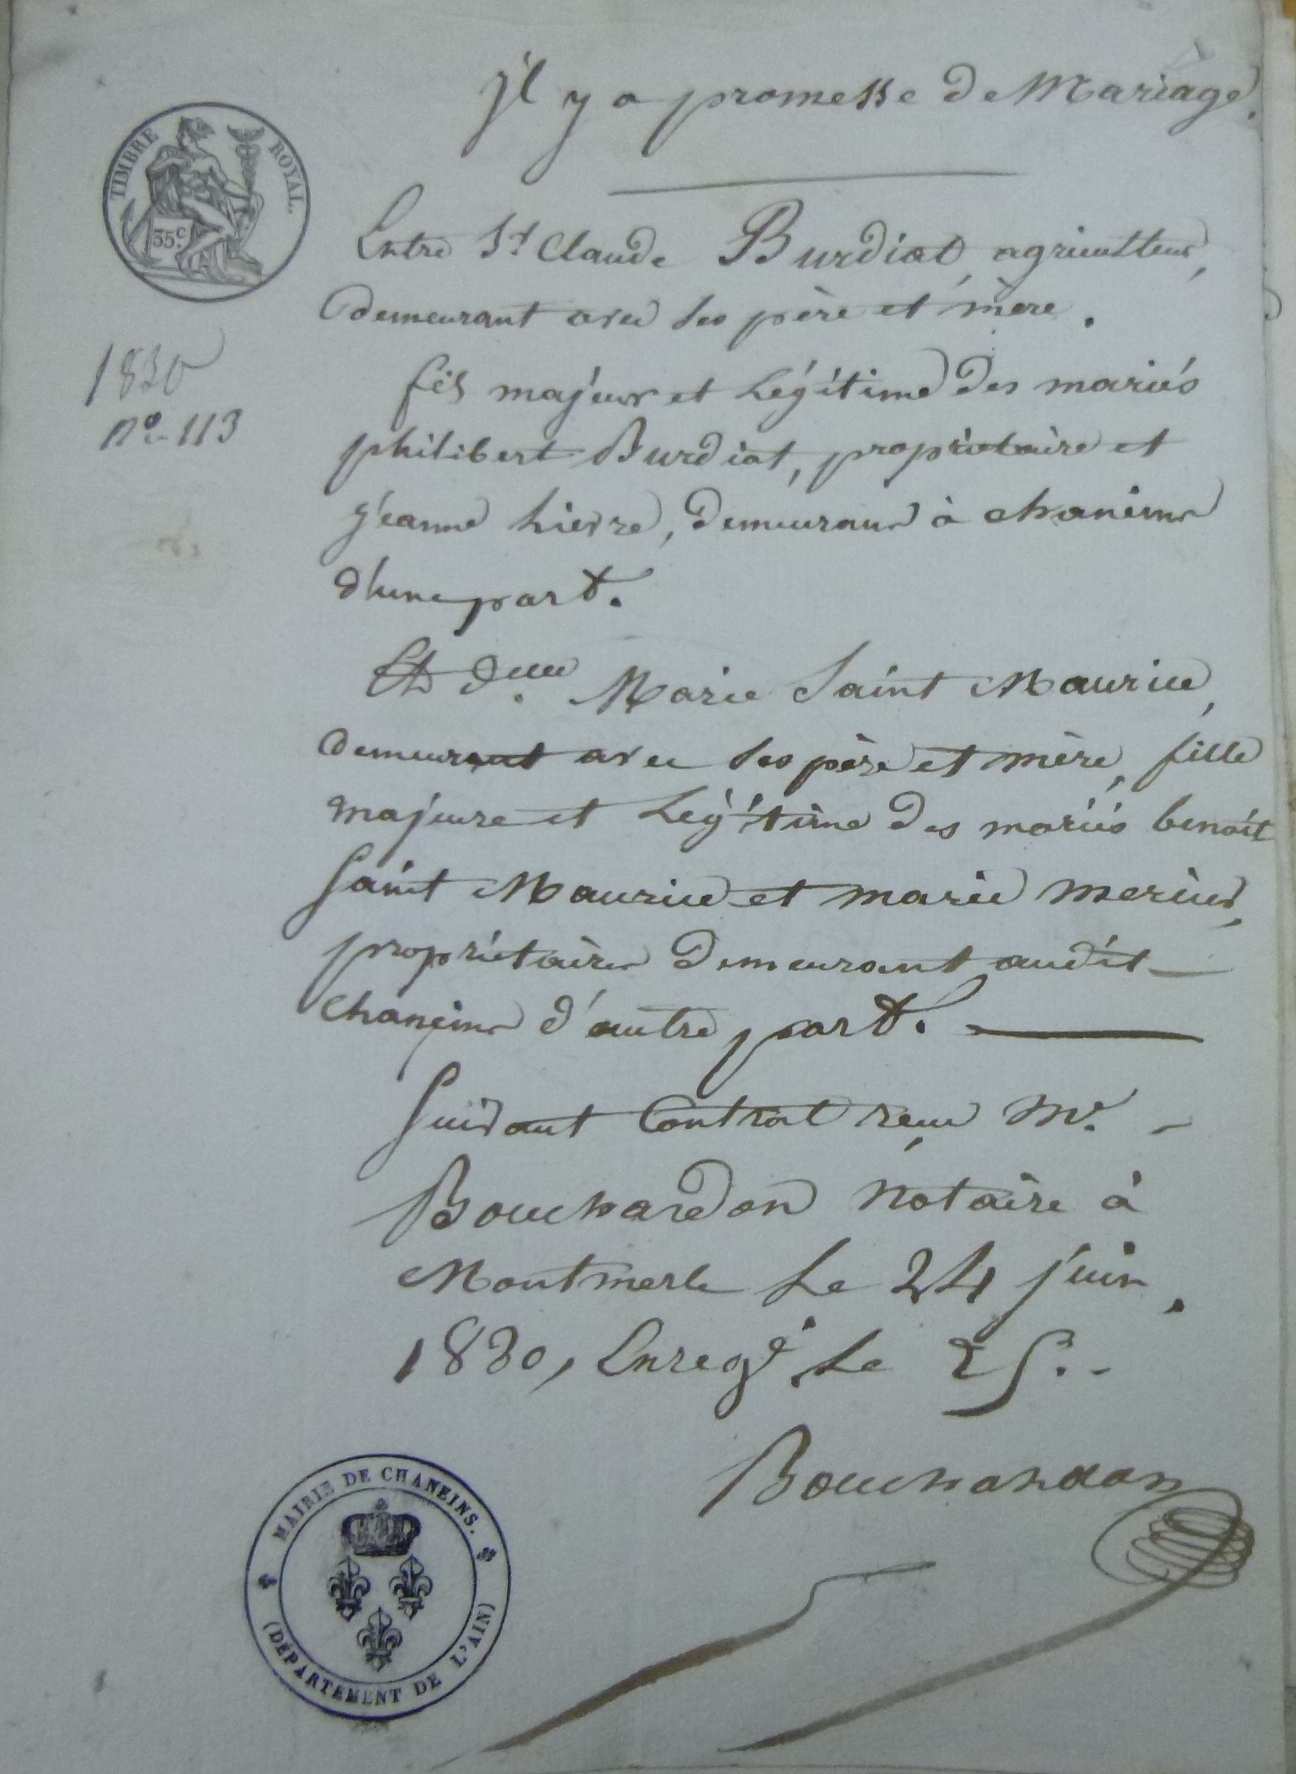 Il y a promesse de Mariage.
TIMBRE ROYAL.
35 c.
Entre Sr Claude Burdiat, agriculteur,
demeurant avec ses père et mère.
1830
n° 113
fils majeur et Légitime des mariés
philibert Burdiat, propriétaire et
jeanne hierre, demeurant à chaneins
d'une part.
Et Delle Marie Saint Maurice,
demeurant avec ses père et mère, fille
majeure et Légitime des mariés benoit
Saint Maurice et marie
propriétaires demeurant audit
chaneins d'autre part.
Suivant Contrat reçu Me.
Bouchardon Notaire à
Montmerle Le 24 juin
1830, Enregé. Le 25.
Bouchardon
MAIRIE DE CHANEINS.
(DÉPARTEMENT DE L'AIN)